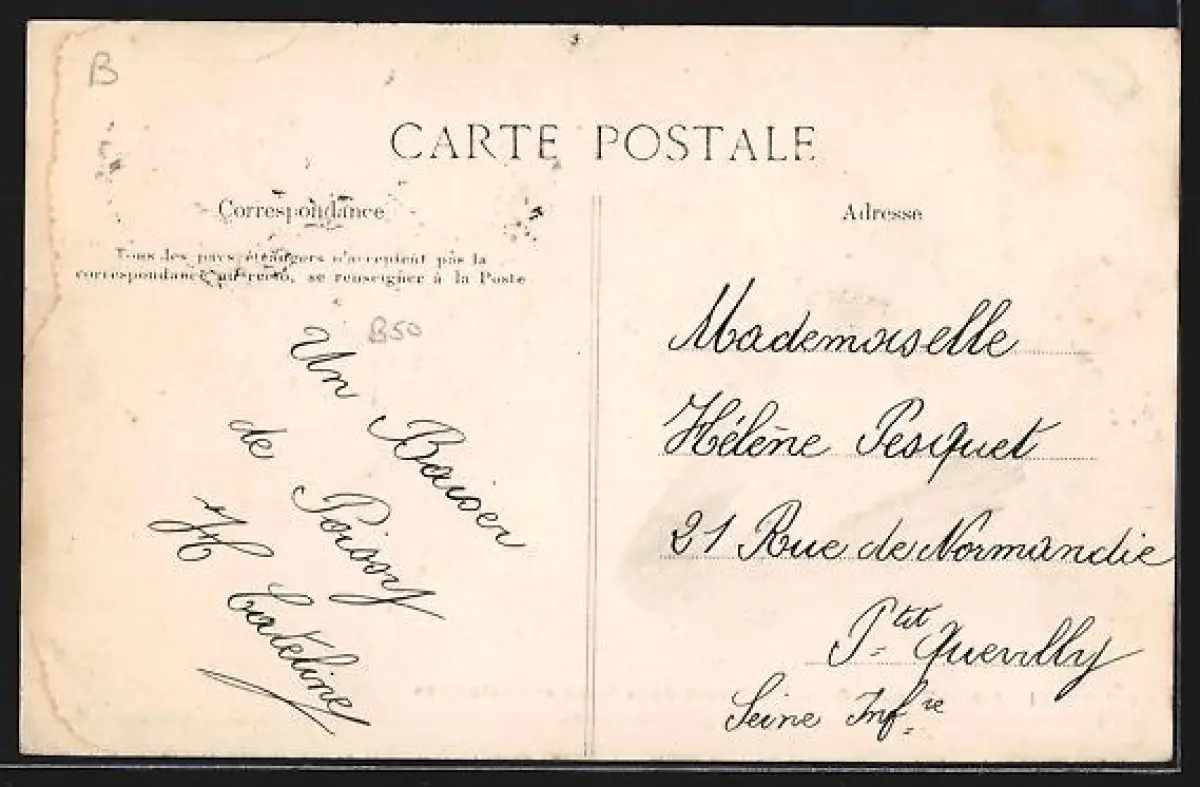 B
CARTE POSTALE
Correspondance
Tous les pays étrangers n'acceptent pas la
correspondance au recto, se renseigner à la Poste
B50
Un Baiser
de Poissy
H Cateline
Adresse
Mademoiselle
Hélène Pesquet
21 Rue de Normandie
Ptit Quevilly
Seine Infre